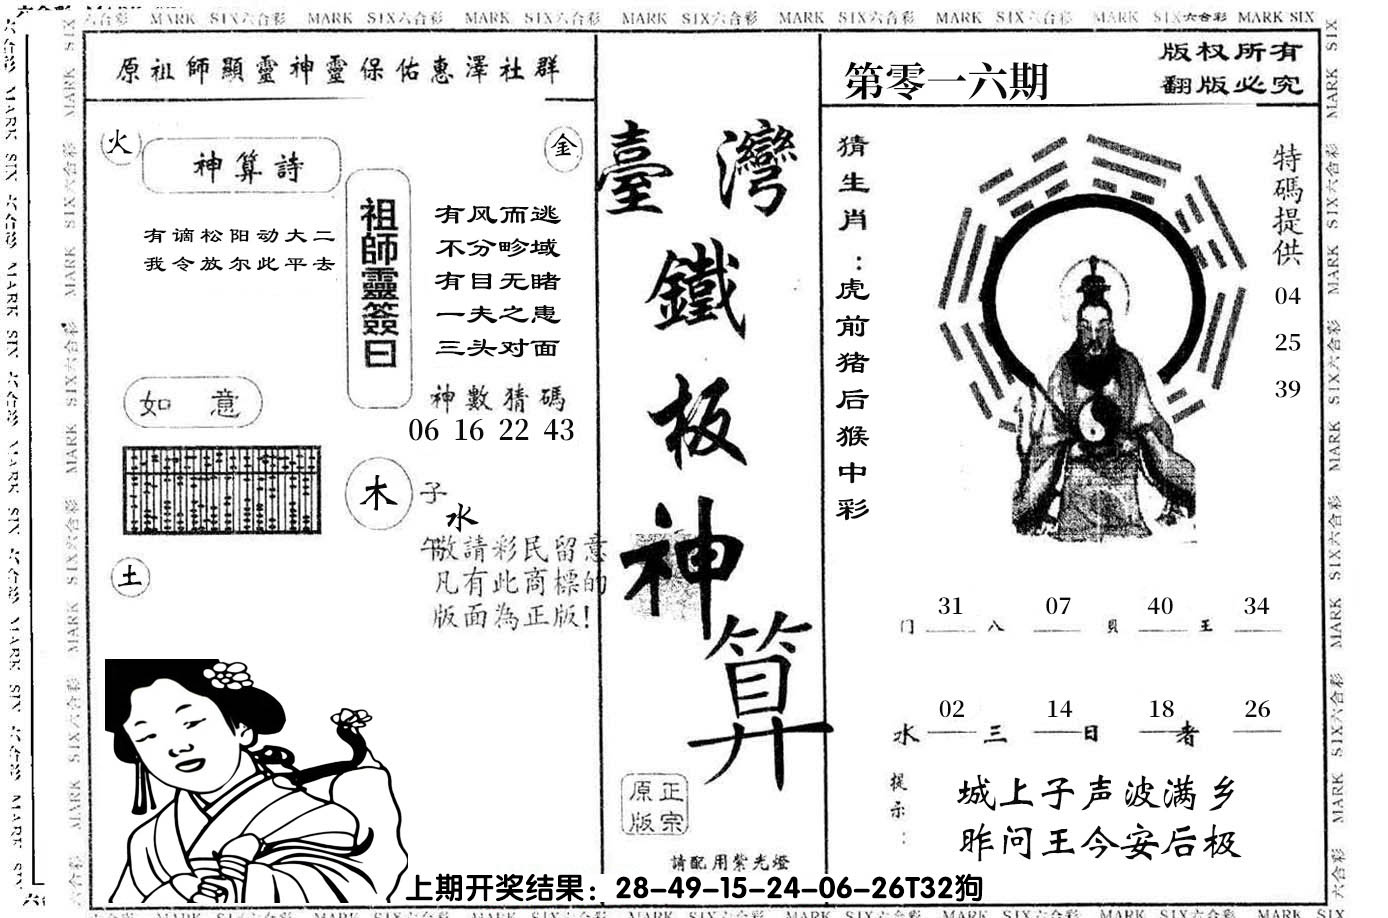 MARK SIX六合彩 MARK SIX六合彩 MARK SIX六合彩 MARK SIX六合彩 MARK SIX六合彩 MARK SIX六合彩 MARK SIX六合彩 MARK SIX
原祖師顯靈神靈保佑惠澤社群
火
神算詩
金
有谪松阳动大二
我令放尔此平去
祖師靈簽曰
有风而逃
不分畛域
有目无睹
一夫之患
三头对面
神數猜碼
06 16 22 43
如意
木
子
水
午
土
敬請彩民留意
凡有此商標的
版面為正版!
臺灣
鐵
板
神
算
正宗
原版
請配用紫光燈
第零一六期
版权所有
翻版必究
猜生肖:虎前猪后猴中彩
特碼提供
04
25
39
31 07 40 34
门 八 貝 王
02 14 18 26
水 三 日 者
提示:
城上子声波满乡
昨问王今安后极
上期开奖结果：28-49-15-24-06-26T32狗